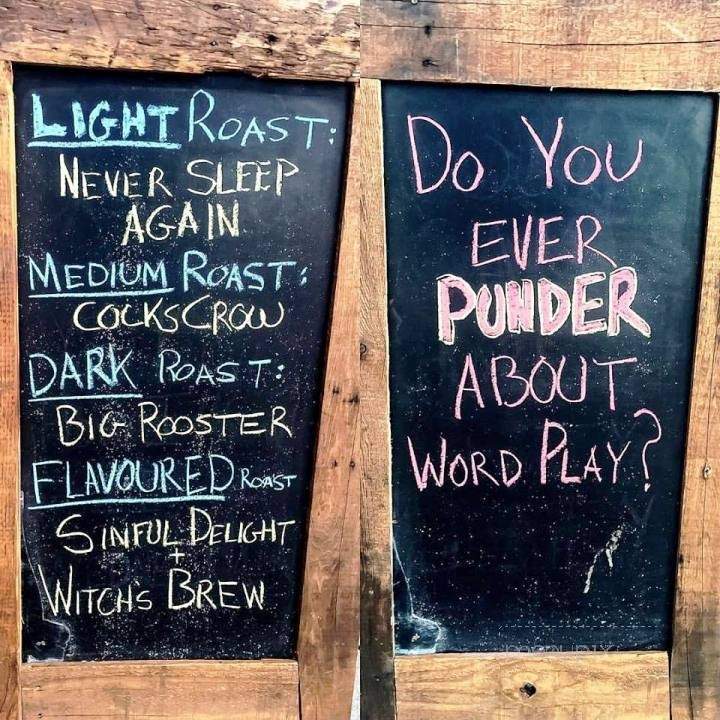 LIGHT ROAST:
NEVER SLEEP
AGAIN
MEDIUM ROAST:
COCKSCROW
DARK ROAST:
BIG ROOSTER
FLAVOURED ROAST
SINFUL DELIGHT
+
WITCHS BREW
DO YOU
EVER
PUNDER
ABOUT
WORD PLAY?